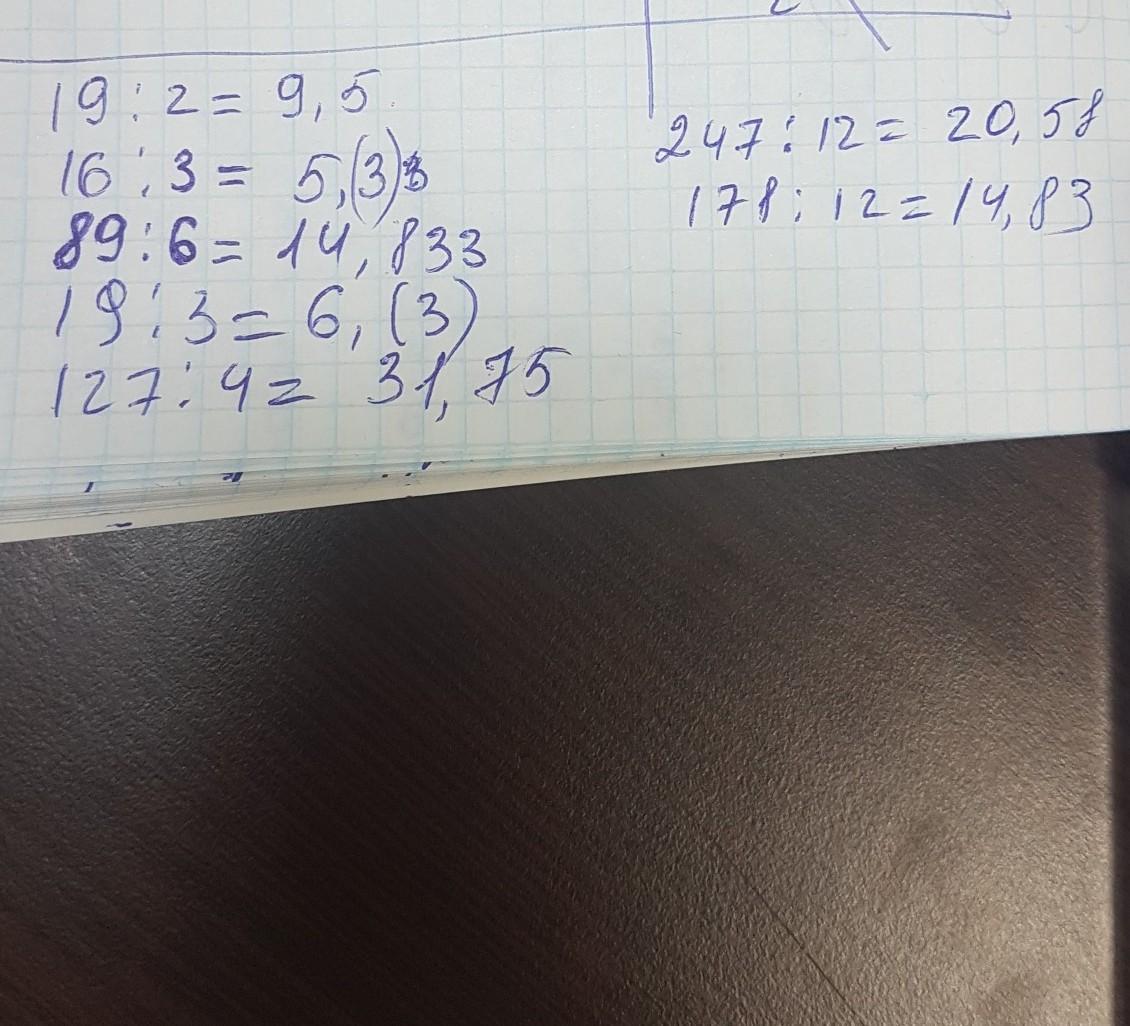 19 : 2 = 9,5
16 : 3 = 5,(3)
89 : 6 = 14,833
19 : 3 = 6,(3)
127 : 4 = 31,75
247 : 12 = 20,58
178 : 12 = 14,83